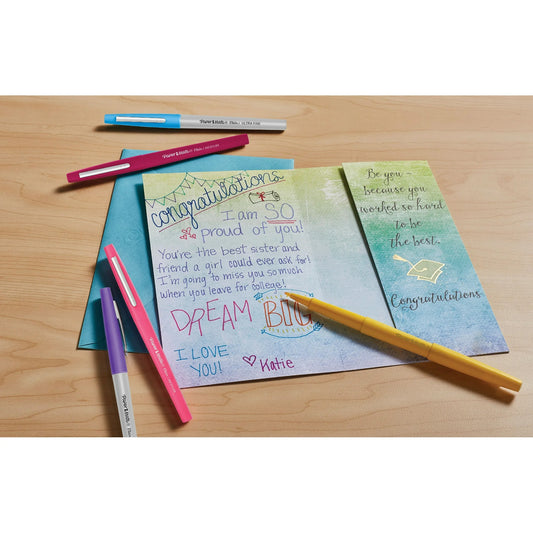 Paper Mate Flair ULTRA FINE
Paper Mate Flair MEDIUM
congratulations
I am SO
proud of you!
You're the best sister and
friend a girl could ever ask for!
I'm going to miss you so much
when you leave for college!
DREAM BIG
I LOVE
YOU!
Katie
Be you -
because you
worked so hard
to be
the best.
Congratulations
Paper Mate